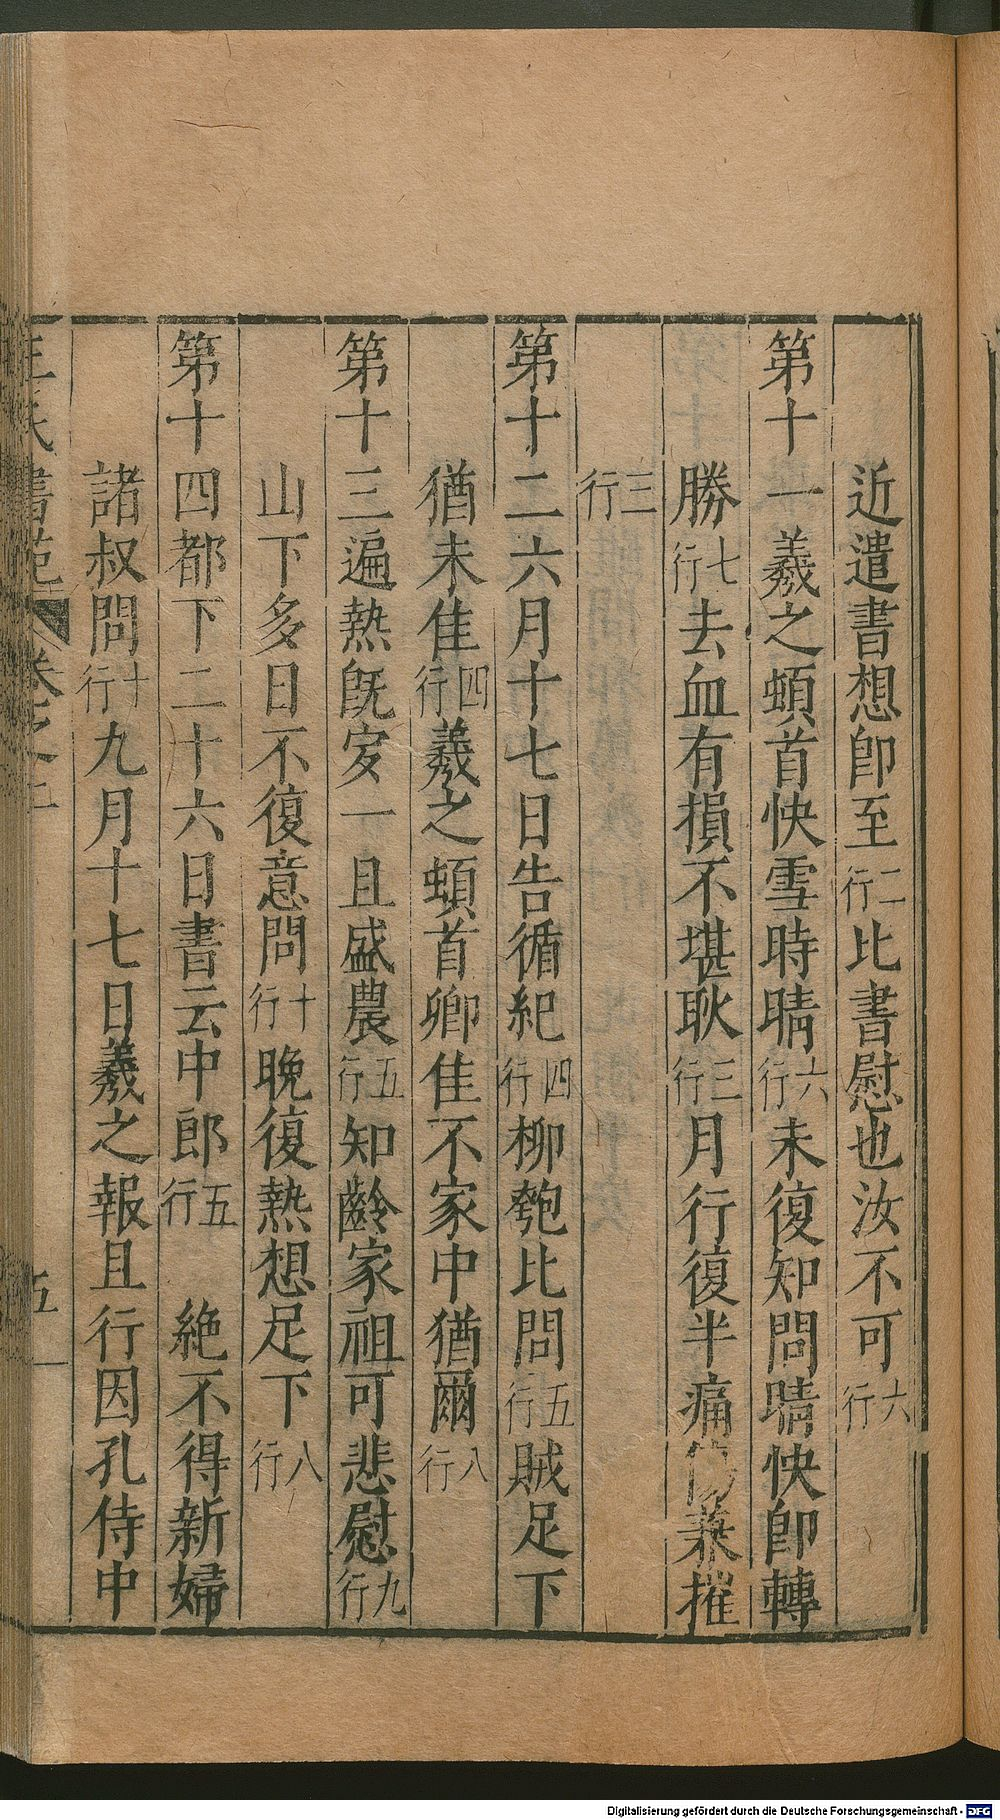 近遣書想卽至二行比書慰也汝不可六行
第十一羲之頓首快雪時晴六行未復知問晴快卽轉
勝七行去血有損不堪耿三行月行復半痛兼摧
三行
第十二六月十七日告循紀四行柳匏比問五行賊足下
猶未佳四行羲之頓首卿佳不家中猶爾八行
第十三遍熱旣𡚶一且盛農五行知齡家祖可悲慰九行
山下多日不復意問十行晚復熱想足下八行
第十四都下二十六日書云中郎五行 絶不得新婦
諸叔問十行九月十七日羲之報且行因孔侍中
王氏書苑 卷之二 五
Digitalisierung gefördert durch die Deutsche Forschungsgemeinschaft - DFG